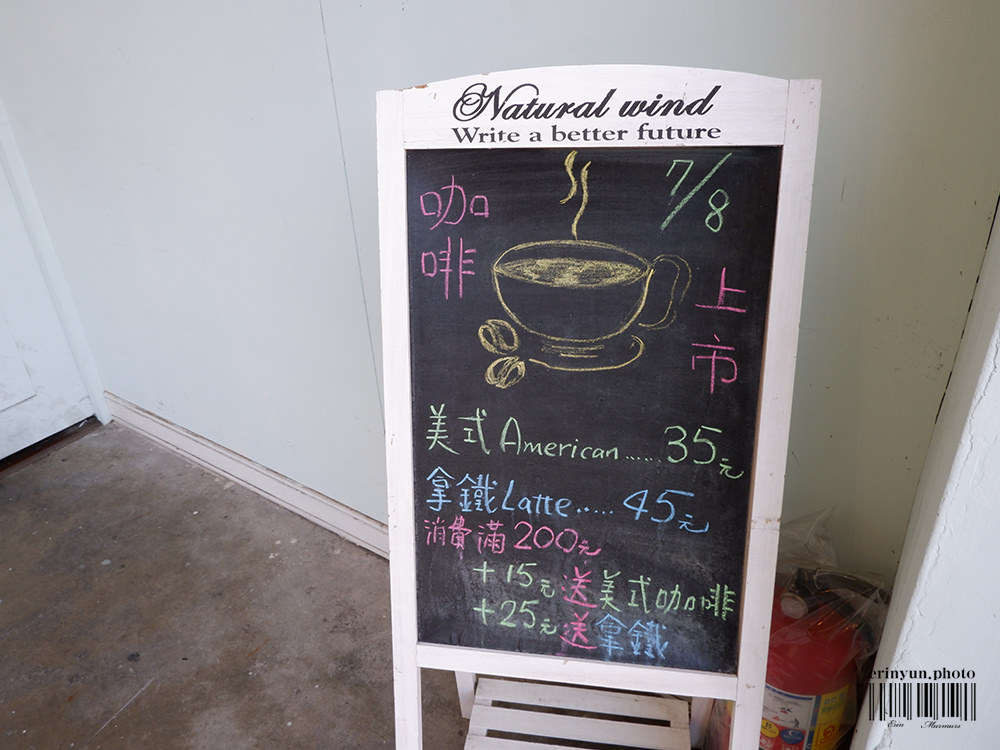 Natural wind
Write a better future
咖啡
7/8
上市
美式American......35元
拿鐵Latte......45元
消費滿200元
+15元送美式咖啡
+25元送拿鐵
erinyun.photo
Erin Murmurs